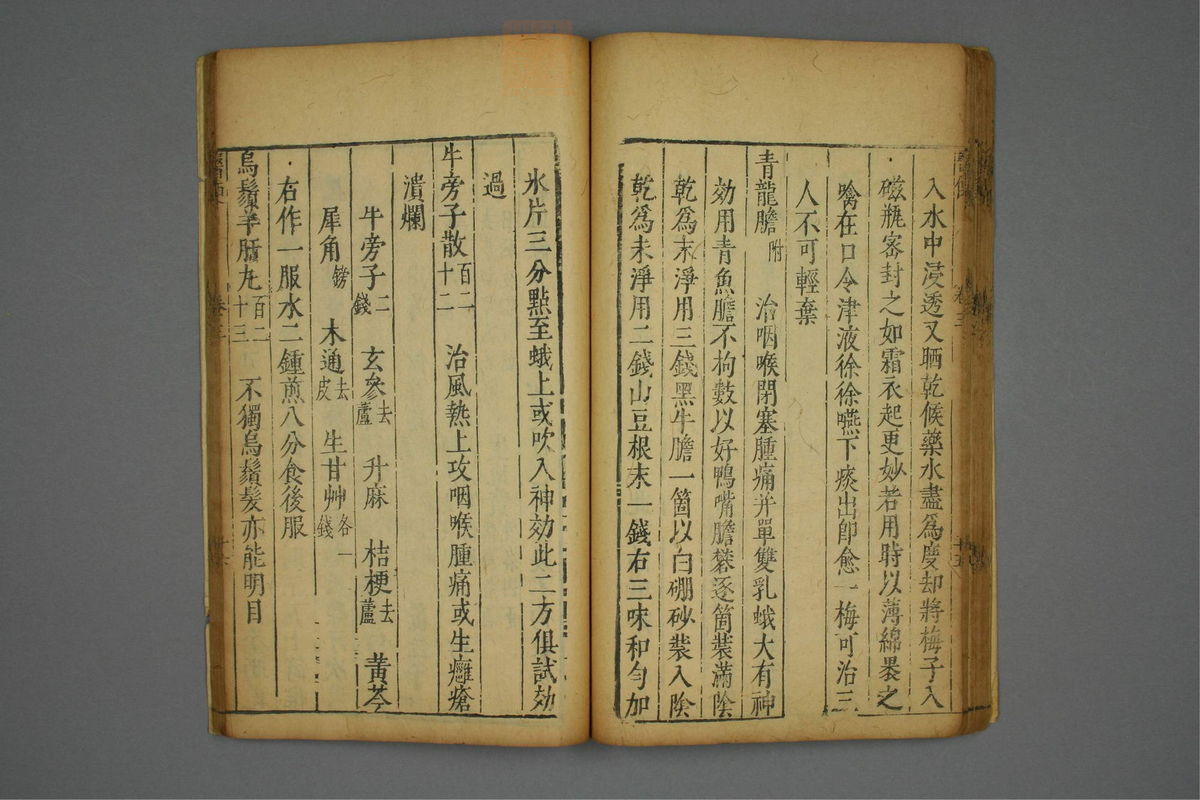 入水中浸透又晒乾候藥水盡爲度却將梅子入
磁瓶密封之如霜衣起更妙若用時以薄綿裹之
噙在口令津液徐徐嚥下痰出卽愈一梅可治三
人不可輕棄
青龍膽附 治咽喉閉塞腫痛并單雙乳蛾大有神
効用青魚膽不拘數以好鴨嘴膽礬逐箇裝滿陰
乾爲末淨用三錢黑牛膽一箇以白硼砂裝入陰
乾爲末淨用二錢山豆根末一錢右三味和勻加
氷片三分點至蛾上或吹入神効此二方俱試効
過
牛旁子散百二十二 治風熱上攻咽喉腫痛或生癰瘡
潰爛
牛旁子二錢 玄參去蘆 升麻 桔梗去蘆 黃芩
犀角鎊 木通去皮 生甘艸各一錢
右作一服水二鍾煎八分食後服
烏鬚羊肝丸百二十三 不獨烏鬚髮亦能明目